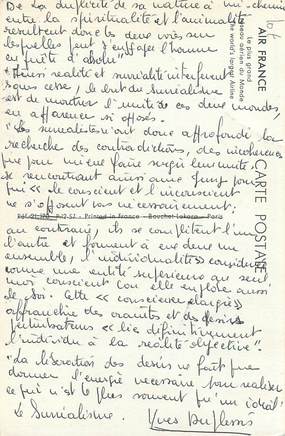 De la duplicité de sa nature à mi-chemin
entre la spiritualité et l'animalité
résultent donc les deux voies sur
lesquelles peut s'engager l'homme
en quête d'absolu"
"Ainsi réalité et surréalité interfèrent
sans cesse, le but du surréalisme
est de montrer l'unité de ces deux mondes,
en apparence si opposés.
"Les surréalistes n'ont donc approfondi la
recherche des contradictions, des incohérences
que pour mieux faire surgir leur unité.
se rencontrant ainsi avec Jung pour
qui "le conscient et l'inconscient
ne s'opposent pas nécessairement;
au contraire, ils se complètent l'un
l'autre et forment à eux deux un
ensemble, l'individualité" considérée
comme une entité supérieure au seul
moi conscient car elle englobe aussi
le soi. Cette "conscience élargie"
affranchie des craintes et des désirs
perturbateurs "lie définitivement
l'individu à la réalité objective".
"La libération des désirs ne fait que
donner l'énergie nécessaire pour réaliser
ce qui n'est le plus souvent qu'un idéal"
Le Surréalisme. Yves Duplessis
AIR FRANCE
Le plus grand
réseau aérien du Monde
The world's largest Airline
CARTE POSTALE
Printed in France
Paris